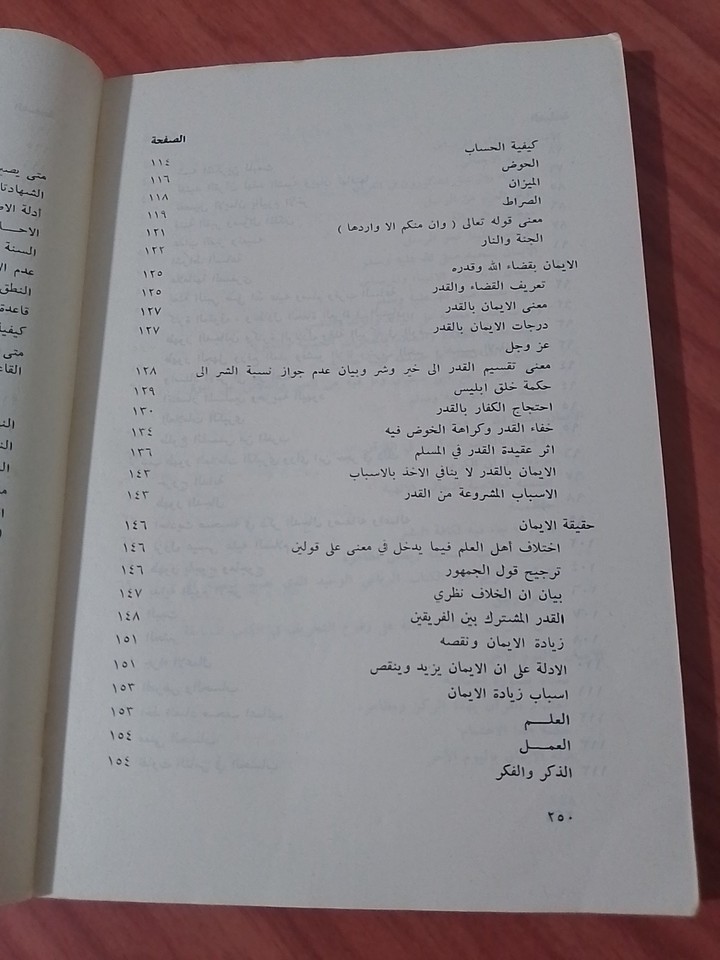 الصفحة
كيفية الحساب ١١٤
الحوض ١١٦
الميزان ١١٨
الصراط ١١٩
معنى قوله تعالى ( وان منكم الا واردها ) ١٢١
الجنة والنار ١٢٢
الايمان بقضاء الله وقدره ١٢٥
تعريف القضاء والقدر ١٢٥
معنى الايمان بالقدر ١٢٧
درجات الايمان بالقدر ١٢٧
عز وجل
معنى تقسيم القدر الى خير وشر وبيان عدم جواز نسبة الشر الى ١٢٨
حكمة خلق ابليس ١٢٩
احتجاج الكفار بالقدر ١٣٠
خفاء القدر وكراهة الخوض فيه ١٣٤
اثر عقيدة القدر في المسلم ١٣٦
الايمان بالقدر لا ينافي الاخذ بالاسباب ١٤٣
الاسباب المشروعة من القدر ١٤٣
حقيقة الايمان ١٤٦
اختلاف أهل العلم فيما يدخل في معنى على قولين ١٤٦
ترجيح قول الجمهور ١٤٦
بيان ان الخلاف نظري ١٤٧
القدر المشترك بين الفريقين ١٤٨
زيادة الايمان ونقصه ١٥١
الادلة على ان الايمان يزيد وينقص ١٥١
اسباب زيادة الايمان ١٥٣
العلـــم ١٥٣
العمـــل ١٥٤
الذكر والفكر ١٥٤
٢٥٠
متى
أدلة
السنة
عدم
النطق
قاعدة
متى